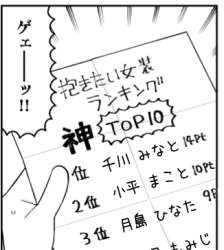 ゲェーーッ!!
抱きたい女装
ランキング
神TOP10
1位 千川 みなと 14Pt
2位 小平 まこと 10Pt
3位 月島 ひなた 9P
もみじ